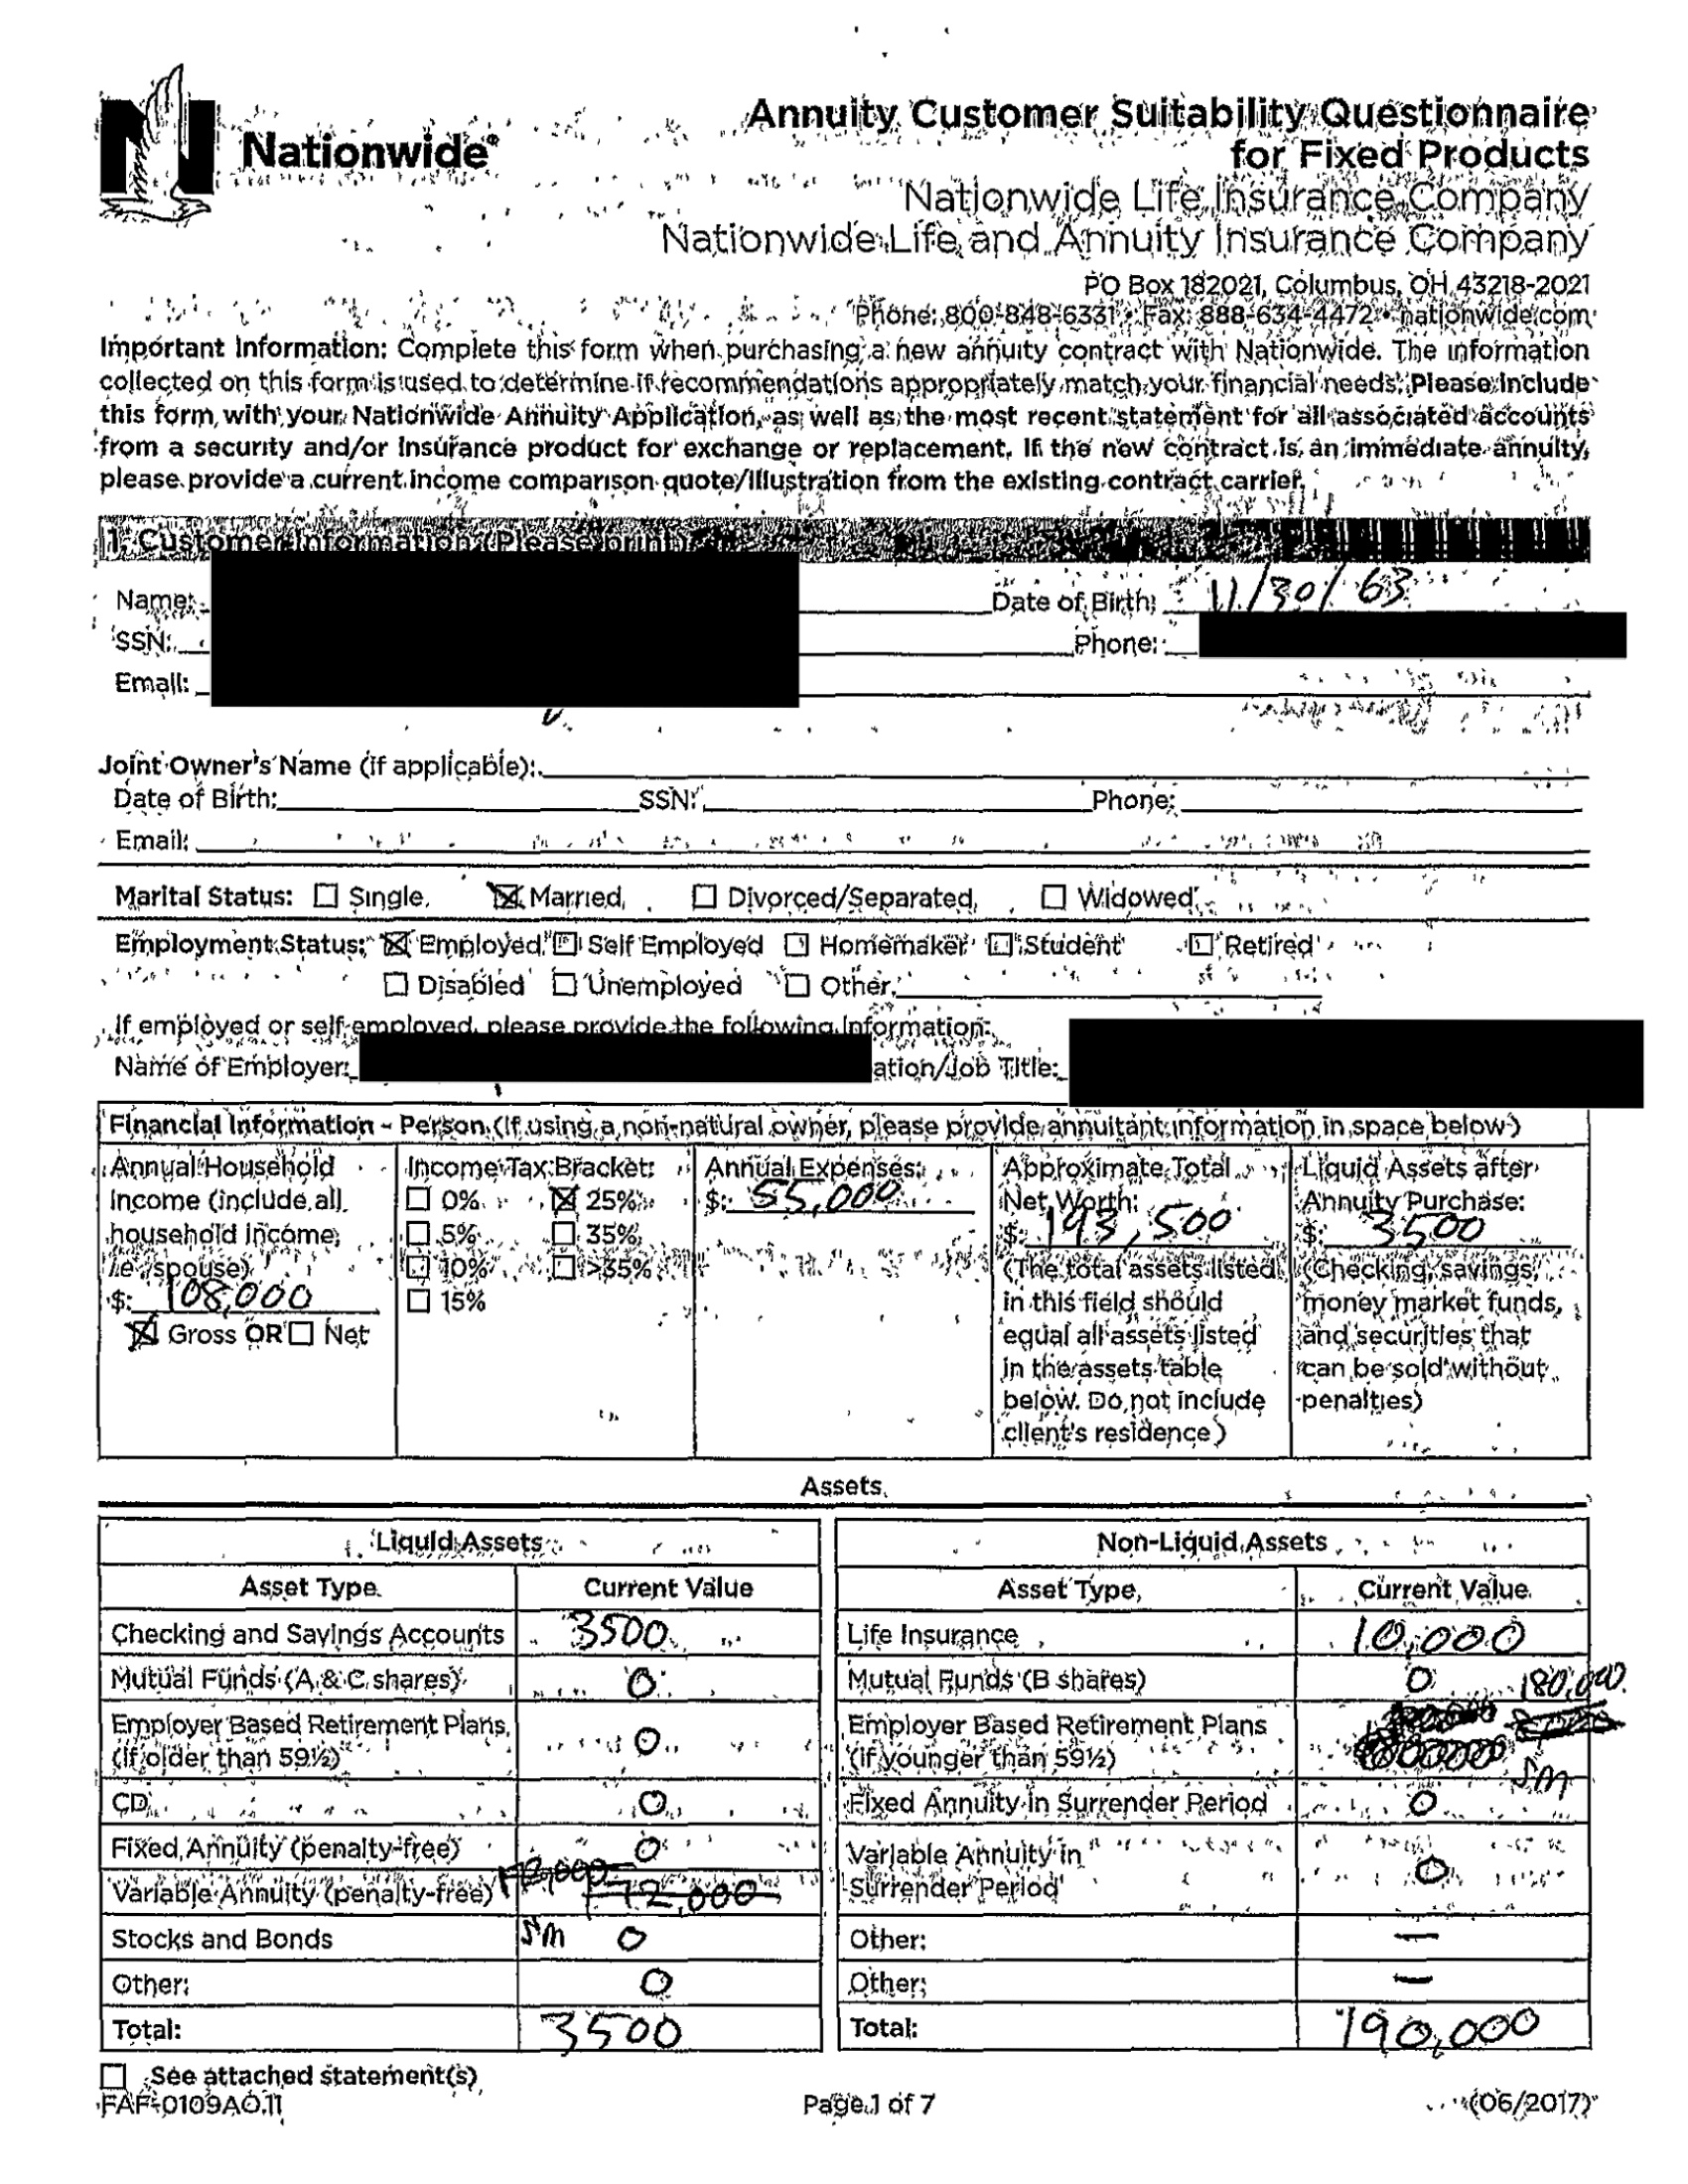 Nationwide®
Annuity Customer Suitability Questionnaire
for Fixed Products
Nationwide Life Insurance Company
Nationwide Life and Annuity Insurance Company
PO Box 182021, Columbus, OH 43218-2021
Phone: 800-848-6331 • Fax: 888-634-4472 • nationwide.com
Important Information: Complete this form when purchasing a new annuity contract with Nationwide. The information
collected on this form is used to determine if recommendations appropriately match your financial needs. Please include
this form with your Nationwide Annuity Application, as well as the most recent statement for all associated accounts
from a security and/or insurance product for exchange or replacement. If the new contract is an immediate annuity,
please provide a current income comparison quote/illustration from the existing contract carrier.
1. Customer Information (Please print)
Name: Date of Birth: 11/30/63
SSN: Phone:
Email:
Joint Owner's Name (if applicable):
Date of Birth: SSN: Phone:
Email:
Marital Status: ☐ Single ☒ Married ☐ Divorced/Separated ☐ Widowed
Employment Status: ☒ Employed ☐ Self Employed ☐ Homemaker ☐ Student ☐ Retired
☐ Disabled ☐ Unemployed ☐ Other
If employed or self-employed, please provide the following information:
Name of Employer: ation/Job Title:
Financial Information - Person (If using a non-natural owner, please provide annuitant information in space below)
Annual Household
Income (include all
household income,
ie spouse)
$: 108,000
☒ Gross OR ☐ Net
Income Tax Bracket:
☐ 0% ☒ 25%
☐ 5% ☐ 35%
☐ 10% ☐ >35%
☐ 15%
Annual Expenses:
$: 55,000
Approximate Total
Net Worth:
$: 193,500
(The total assets listed
in this field should
equal all assets listed
in the assets table
below. Do not include
client's residence)
Liquid Assets after
Annuity Purchase:
$: 3500
(Checking, savings,
money market funds,
and securities that
can be sold without
penalties)
Assets
Liquid Assets
Asset Type Current Value
Checking and Savings Accounts 3500
Mutual Funds (A & C shares) 0
Employer Based Retirement Plans
(if older than 59½) 0
CD 0
Fixed Annuity (penalty-free) 0
Variable Annuity (penalty-free) 172,000 172,000
Stocks and Bonds SM 0
Other: 0
Total: 3500
Non-Liquid Assets
Asset Type Current Value
Life Insurance 10,000
Mutual Funds (B shares) 0
Employer Based Retirement Plans 180,000
(if younger than 59½) SM
Fixed Annuity in Surrender Period 0
Variable Annuity in
Surrender Period 0
Other: —
Other: —
Total: 190,000
☐ See attached statement(s)
FAF-0109AO.11 Page 1 of 7 (06/2017)